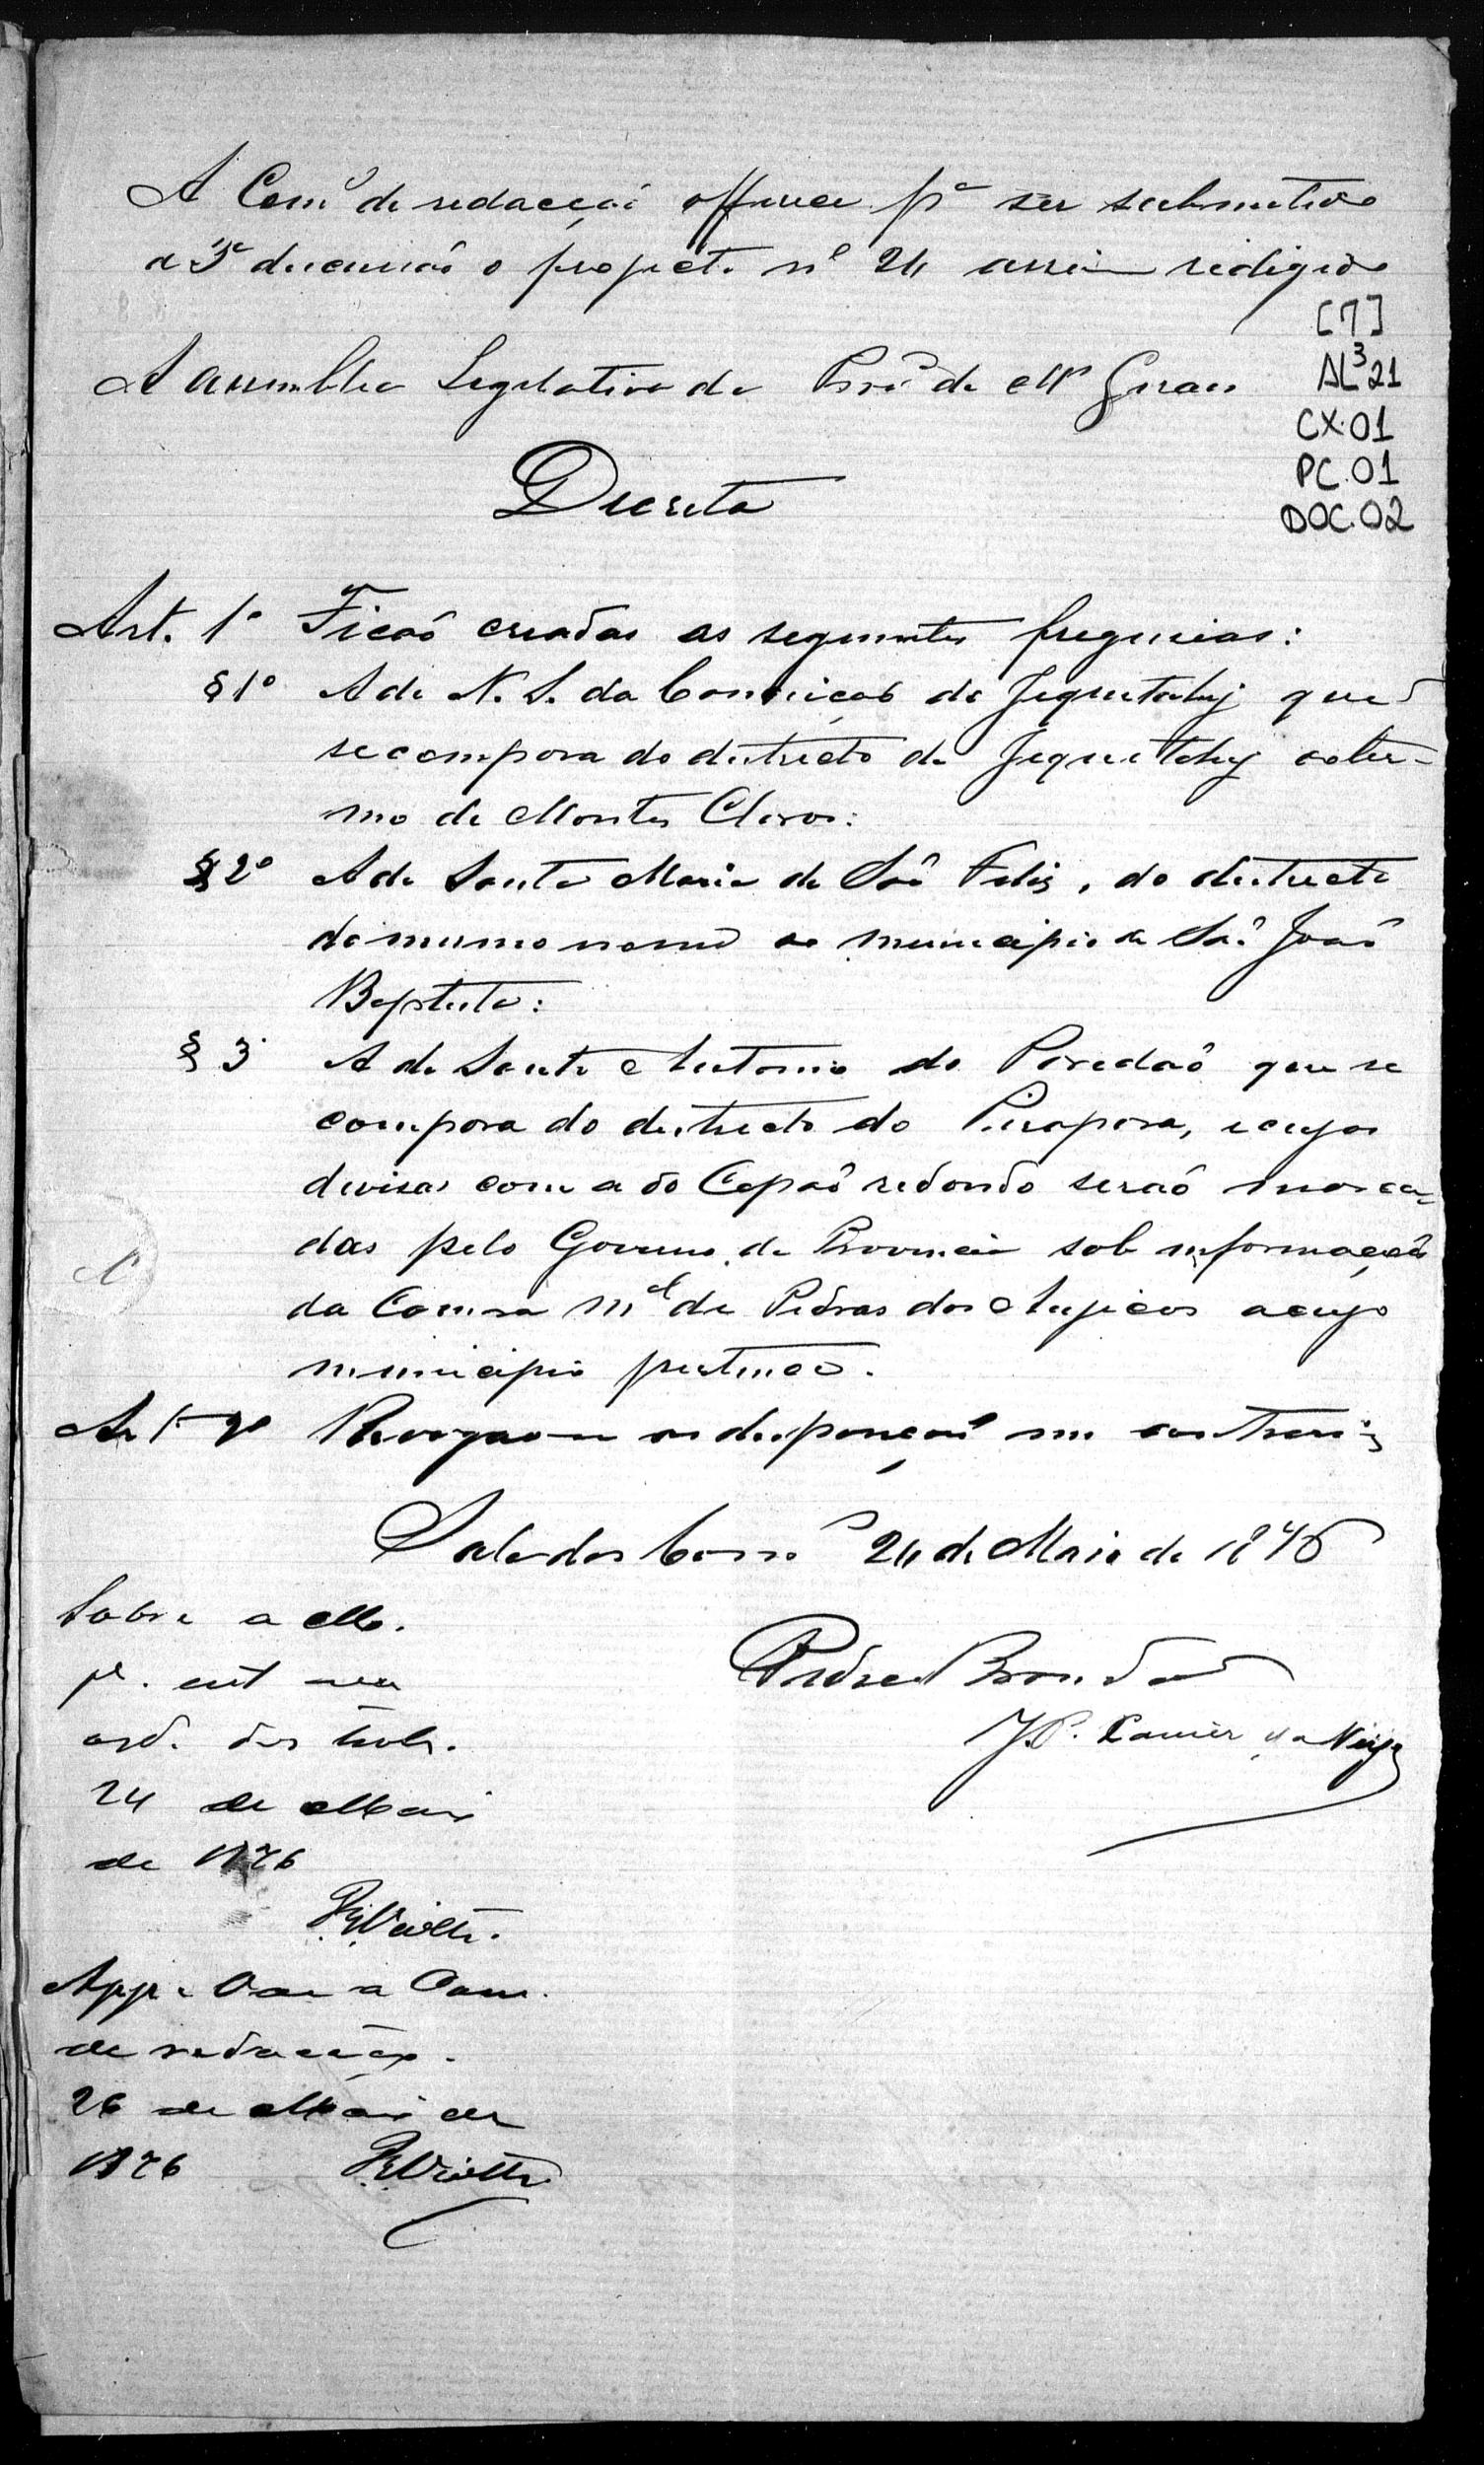 A Com.º de redacção offerece pª ser submettido
a 3ª discussão o projecto nº 24 assim redigido
[7]
AL³21
CX.01
PC.01
DOC.02
A Assemblea Legislativa da Provª de Mª Geraes
Decreta
Art. 1º Ficaõ creadas as seguintes freguesias:
§ 1º A de N. S. da Conceicaõ de Jequetahy que
se compora do districto de Jequetahy do ter-
mo de Montes Claros:
§ 2º A de Santa Maria de Saõ Felix, do districto
do mesmo nome do municipio de Saõ Joaõ
Baptista:
§ 3º A de Santo Antonio do Paredaõ que se
compora do districto do Pirapora, e cujas
divisas com a do Capaõ redondo seraõ marca-
das pelo Governo da Provincia sob informaçaõ
da Camara M.el de Pedras dos Angicos a cujo
municipio pertence.
Art 2º Revogaõ-se as disposiçoẽs em contrario
Sala das Comm.º 24 de Maio de 1876
Pedro Brandaõ
J. P. Xavier da Veiga
Sobre a Me.
pª. ent na
ord. dos trabs.
24 de Maio
de 1876
Viotti.
App. Vae a Com.
de redacção.
26 de Maio de
1876 Viotti